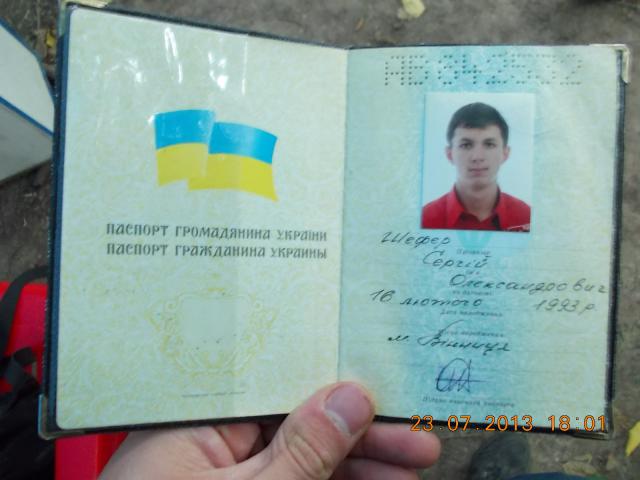 ПАСПОРТ ГРОМАДЯНИНА УКРАЇНИ
ПАСПОРТ ГРАЖДАНИНА УКРАИНЫ
Шефер
Прізвище
Сергій
Ім'я
Олександрович
По батькові
16 лютого 1993 р.
Дата народження
Місце народження
м. Вінниця
Підпис власника паспорта
23.07.2013 18:01